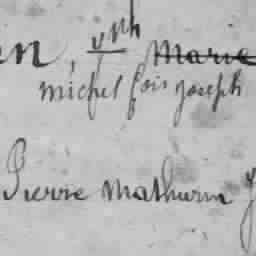 en, vph Marie
michel fois joseph
Pierre Mathurin J